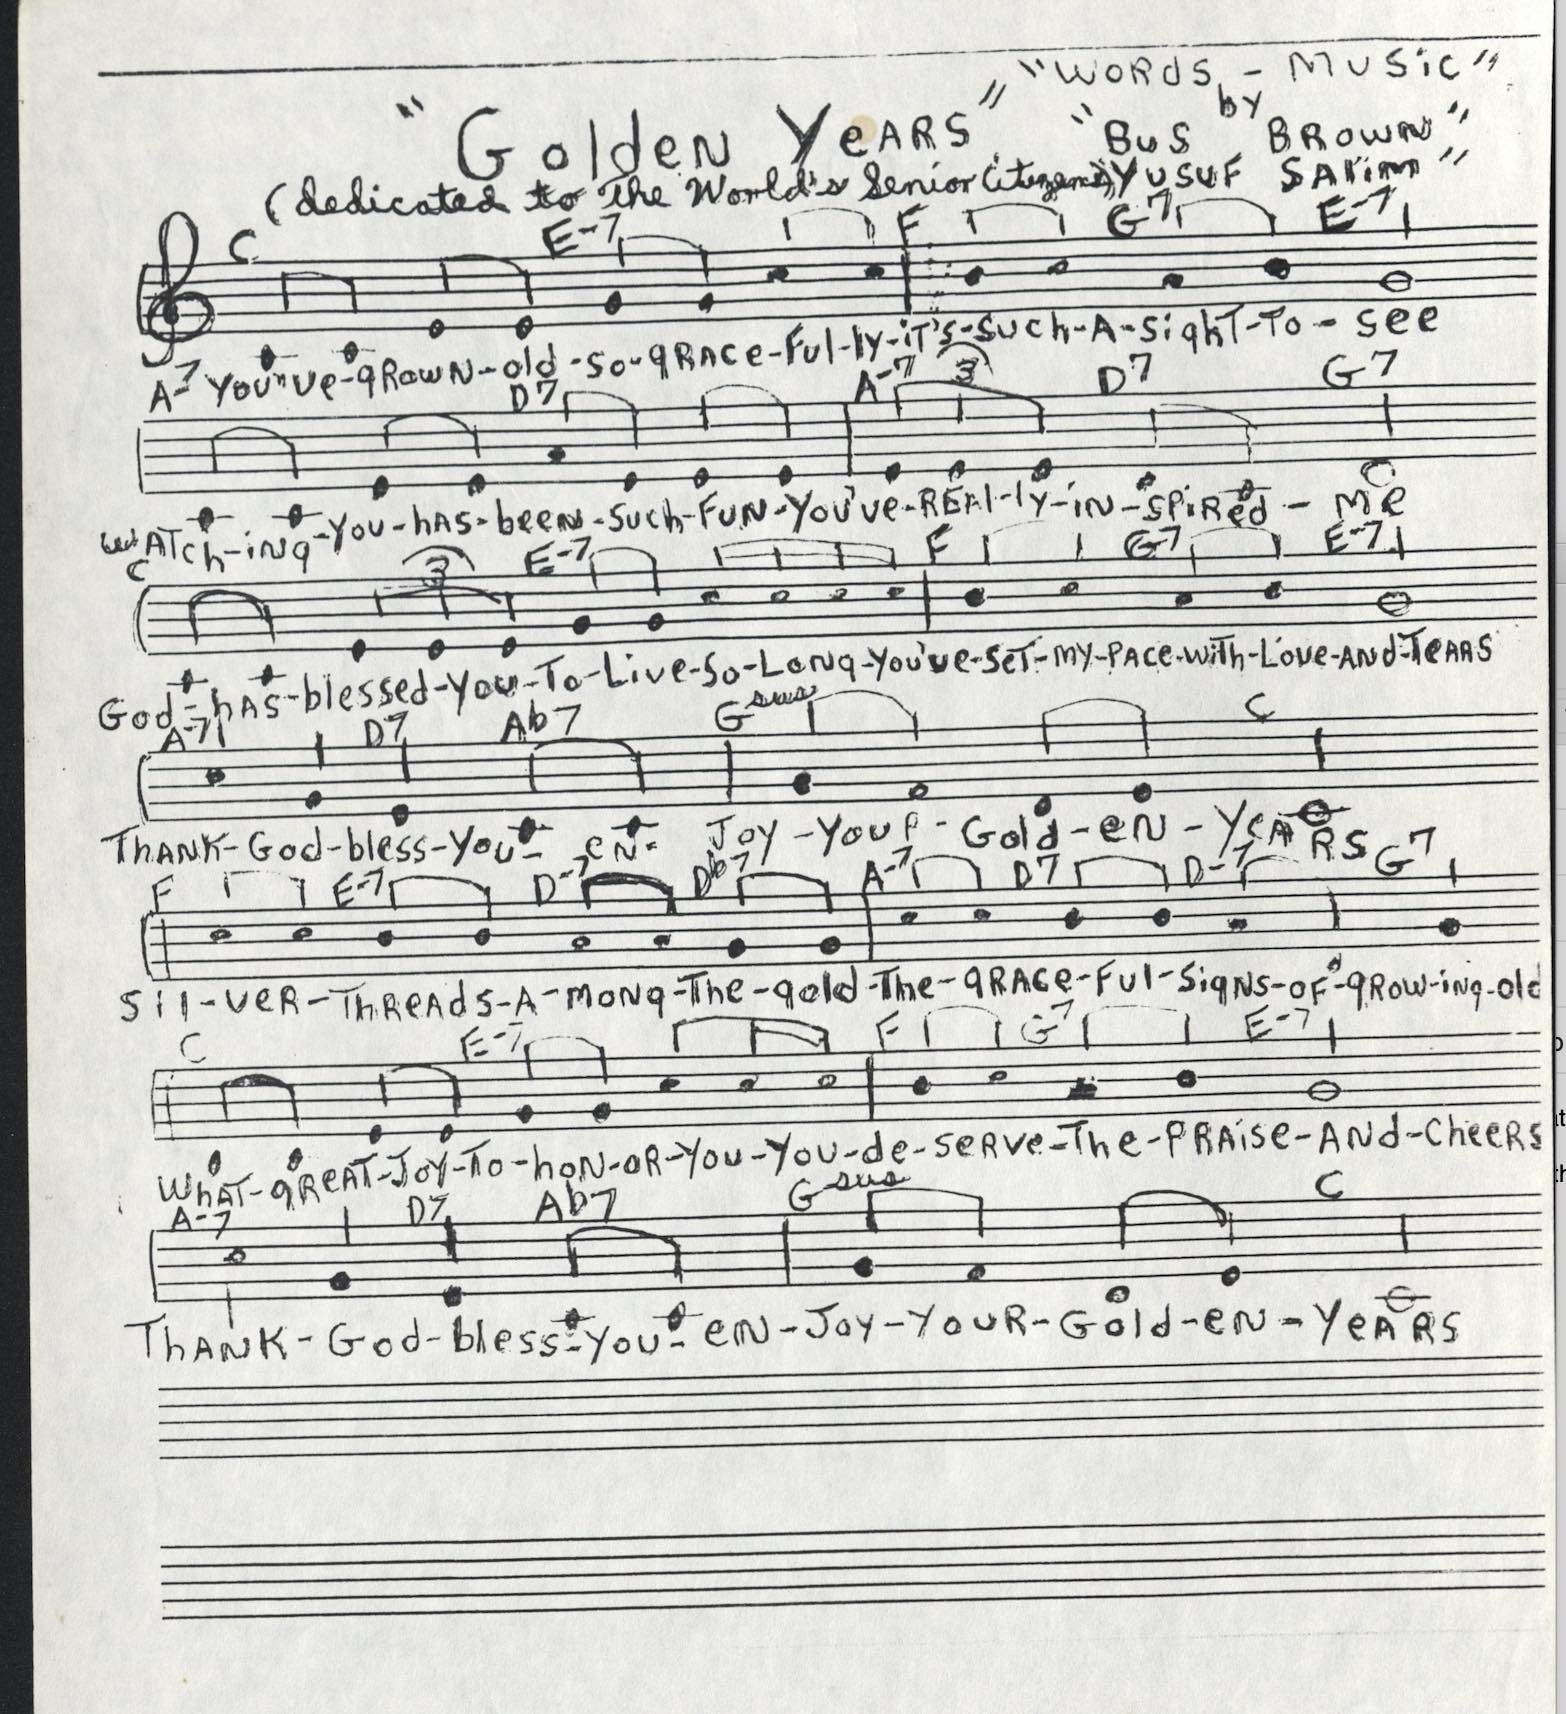 "WORDS - MUSIC"
by
"Golden YeARS"
"BUS BROWN"
(dedicated to The World's Senior Citizens) YUSUF SAlim"
C E-7 F G7 E-7
You've-gRowN-old-so-gRAce-Ful-ly-iT's-Such-A-SighT-To-see
A-7 D7 A-7 3 D7 G7
wATch-iNg-You-hAS-beeN-Such-FuN-You've-REAl-ly-iN-SpiRed-Me
C 3 E-7 F G7 E-7
God-hAS-blessed-You-To-Live-So-LoNg-You've-SeT-My-PAce-wiTh-Love-ANd-TeARS
A-7 D7 Ab7 Gsus C
ThANK-God-bless-you-eN-Joy-YouR-Gold-eN-YeARS
F E-7 D-7 Db7 A-7 D7 D-7 G7
Sil-veR-ThReAds-A-moNg-The-gold-The-gRAce-Ful-SigNs-oF-gRow-iNg-old
C E-7 F G7 E-7
WhAT-gReAT-Joy-To-hoN-oR-You-You-de-seRve-The-PRAise-ANd-CheeRS
A-7 D7 Ab7 Gsus C
ThANK-God-bless-you-eN-Joy-YouR-Gold-eN-YeARS